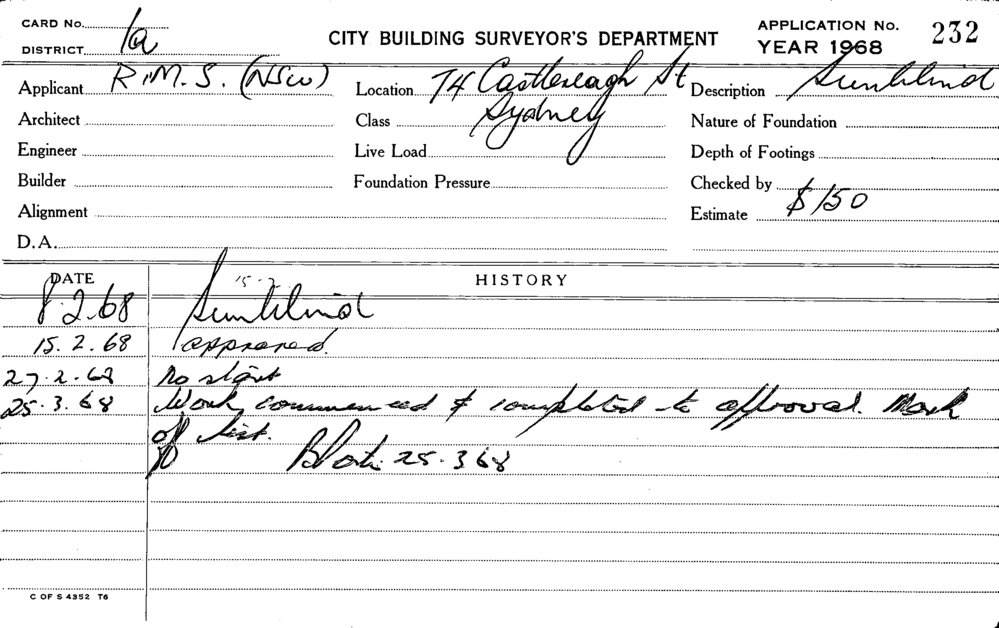 CARD No.
DISTRICT 1a
CITY BUILDING SURVEYOR'S DEPARTMENT
APPLICATION No. 232
YEAR 1968
Applicant R.M.S. (NSW) Location 74 Castlereagh St Description Sunblind
Architect Class Sydney Nature of Foundation
Engineer Live Load Depth of Footings
Builder Foundation Pressure Checked by
Alignment Estimate $150
D.A.
DATE 15.2 HISTORY
8.2.68 Sunblind
15.2.68 approved.
27.2.68 No start
25.3.68 Work commenced & completed to approval. Mark
off list.
25.3 68
C OF S 4352 T6